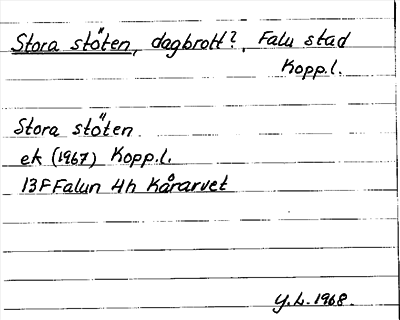 Stora stöten, dagbrott?, Falu stad
Kopp.l.
Stora stöten.
ek (1967) Kopp.l.
13F Falun 4h Kårarvet
Y.L. 1968.